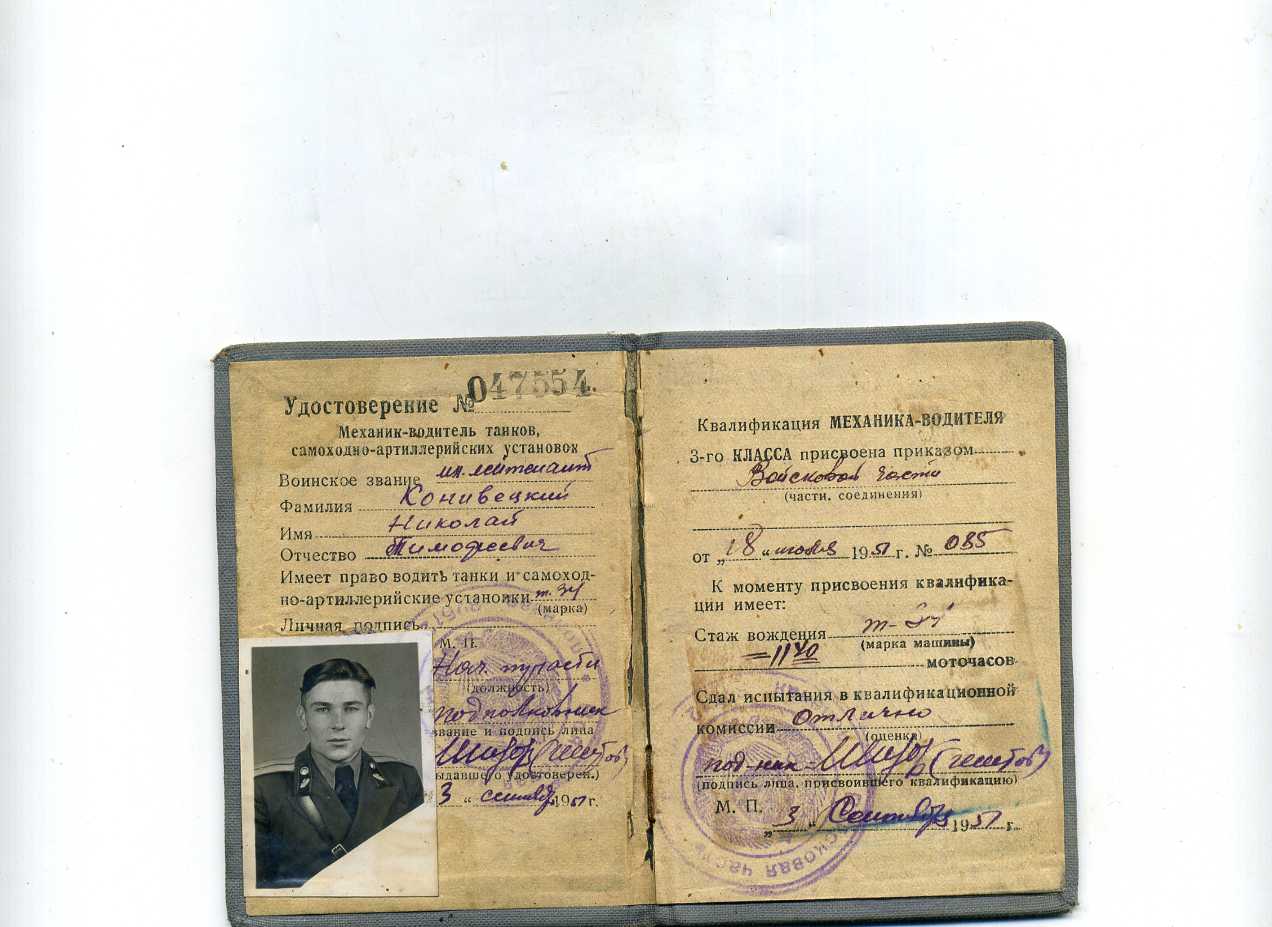 Удостоверение № 047554
Механик-водитель танков,
самоходно-артиллерийских установок
Воинское звание мл. лейтенант
Фамилия Конивецкий
Имя Николай
Отчество Тимофеевич
Имеет право водить танки и самоход-
но-артиллерийские установки т-34
(марка)
Личная подпись
М. П.
Нач.
(должность)
подполковник
звание и подпись лица
выдавшего удостоверен.)
3 " 1951 г.
Квалификация МЕХАНИКА-ВОДИТЕЛЯ
3-го КЛАССА присвоена приказом
Войсковой части
(части, соединения)
от „18 " 1951 г. № 085
К моменту присвоения квалифика-
ции имеет:
Стаж вождения т-34
(марка машины)
=1140
моточасов
Сдал испытания в квалификационной
комиссии отлично
(оценка)
(подпись лица, присвоившего квалификацию)
М. П.
„ 3 " Сентября 1951 г.
ВОЙСКОВАЯ ЧАСТЬ